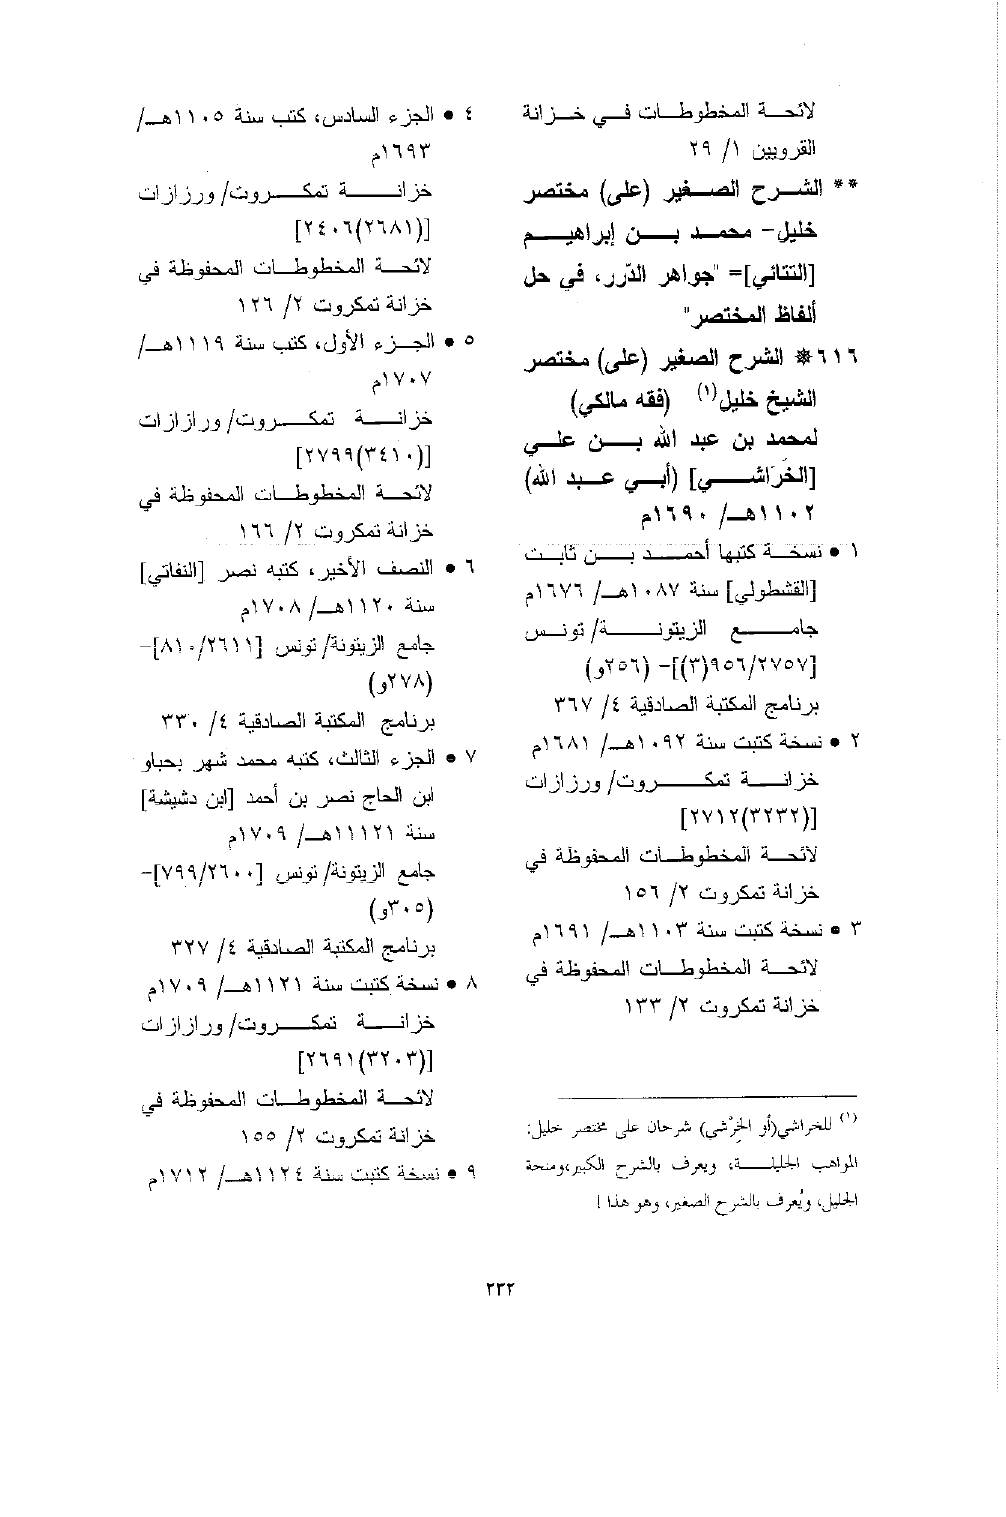 لائحة المخطوطات في خزانة
القرويين ١/ ٢٩
** الشرح الصغير (على) مختصر
خليل- محمد بن إبراهيم
[التتائي]= "جواهر الدّرر، في حل
ألفاظ المختصر"
٦١٦* الشرح الصغير (على) مختصر
الشيخ خليل(١) (فقه مالكي)
لمحمد بن عبد الله بن علي
[الخَرَاشي] (أبي عبد الله)
١١٠٢هـ/ ١٦٩٠م
١ • نسخة كتبها أحمد بن ثابت
[القشطولي] سنة ١٠٨٧هـ/ ١٦٧٦م
جامع الزيتونة/ تونس
[٩٥٦/٢٧٥٧(٣)]- (٢٥٦و)
برنامج المكتبة الصادقية ٤/ ٣٦٧
٢ • نسخة كتبت سنة ١٠٩٢هـ/ ١٦٨١م
خزانة تمكروت/ ورزازات
[(٣٢٣٢)٢٧١٢]
لائحة المخطوطات المحفوظة في
خزانة تمكروت ٢/ ١٥٦
٣ • نسخة كتبت سنة ١١٠٣هـ/ ١٦٩١م
لائحة المخطوطات المحفوظة في
خزانة تمكروت ٢/ ١٣٣
(١) للخراشي(أو الخِرْشي) شرحان على مختصر خليل:
المواهب الجليلة، ويعرف بالشرح الكبير،ومنحة
الجليل، ويُعرف بالشرح الصغير، وهو هذا !
٤ • الجزء السادس، كتب سنة ١١٠٥هـ/
١٦٩٣م
خزانة تمكروت/ ورزازات
[(٢٦٨١)٢٤٠٦]
لائحة المخطوطات المحفوظة في
خزانة تمكروت ٢/ ١٢٦
٥ • الجزء الأول، كتب سنة ١١١٩هـ/
١٧٠٧م
خزانة تمكروت/ ورازازات
[(٣٤١٠)٢٧٩٩]
لائحة المخطوطات المحفوظة في
خزانة تمكروت ٢/ ١٦٦
٦ • النصف الأخير، كتبه نصر [النفاتي]
سنة ١١٢٠هـ/ ١٧٠٨م
جامع الزيتونة/ تونس [٨١٠/٢٦١١]-
(٢٧٨و)
برنامج المكتبة الصادقية ٤/ ٣٣٠
٧ • الجزء الثالث، كتبه محمد شهر بحباو
ابن الحاج نصر بن أحمد [ابن دشيشة]
سنة ١١١٢١هـ/ ١٧٠٩م
جامع الزيتونة/ تونس [٧٩٩/٢٦٠٠]-
(٣٠٥و)
برنامج المكتبة الصادقية ٤/ ٣٢٧
٨ • نسخة كتبت سنة ١١٢١هـ/ ١٧٠٩م
خزانة تمكروت/ ورازازات
[(٣٢٠٣)٢٦٩١]
لائحة المخطوطات المحفوظة في
خزانة تمكروت ٢/ ١٥٥
٩ • نسخة كتبت سنة ١١٢٤هـ/ ١٧١٢م
٢٣٢